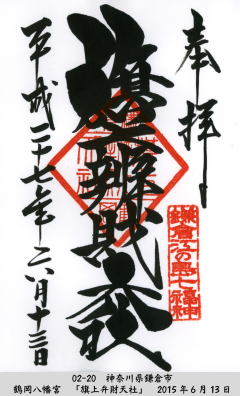 奉拝
旗上辨財天社
平成二十七年六月十三日
鎌倉江の島七福神
02-20 神奈川県鎌倉市
鶴岡八幡宮 「旗上弁財天社」 2015年6月13日